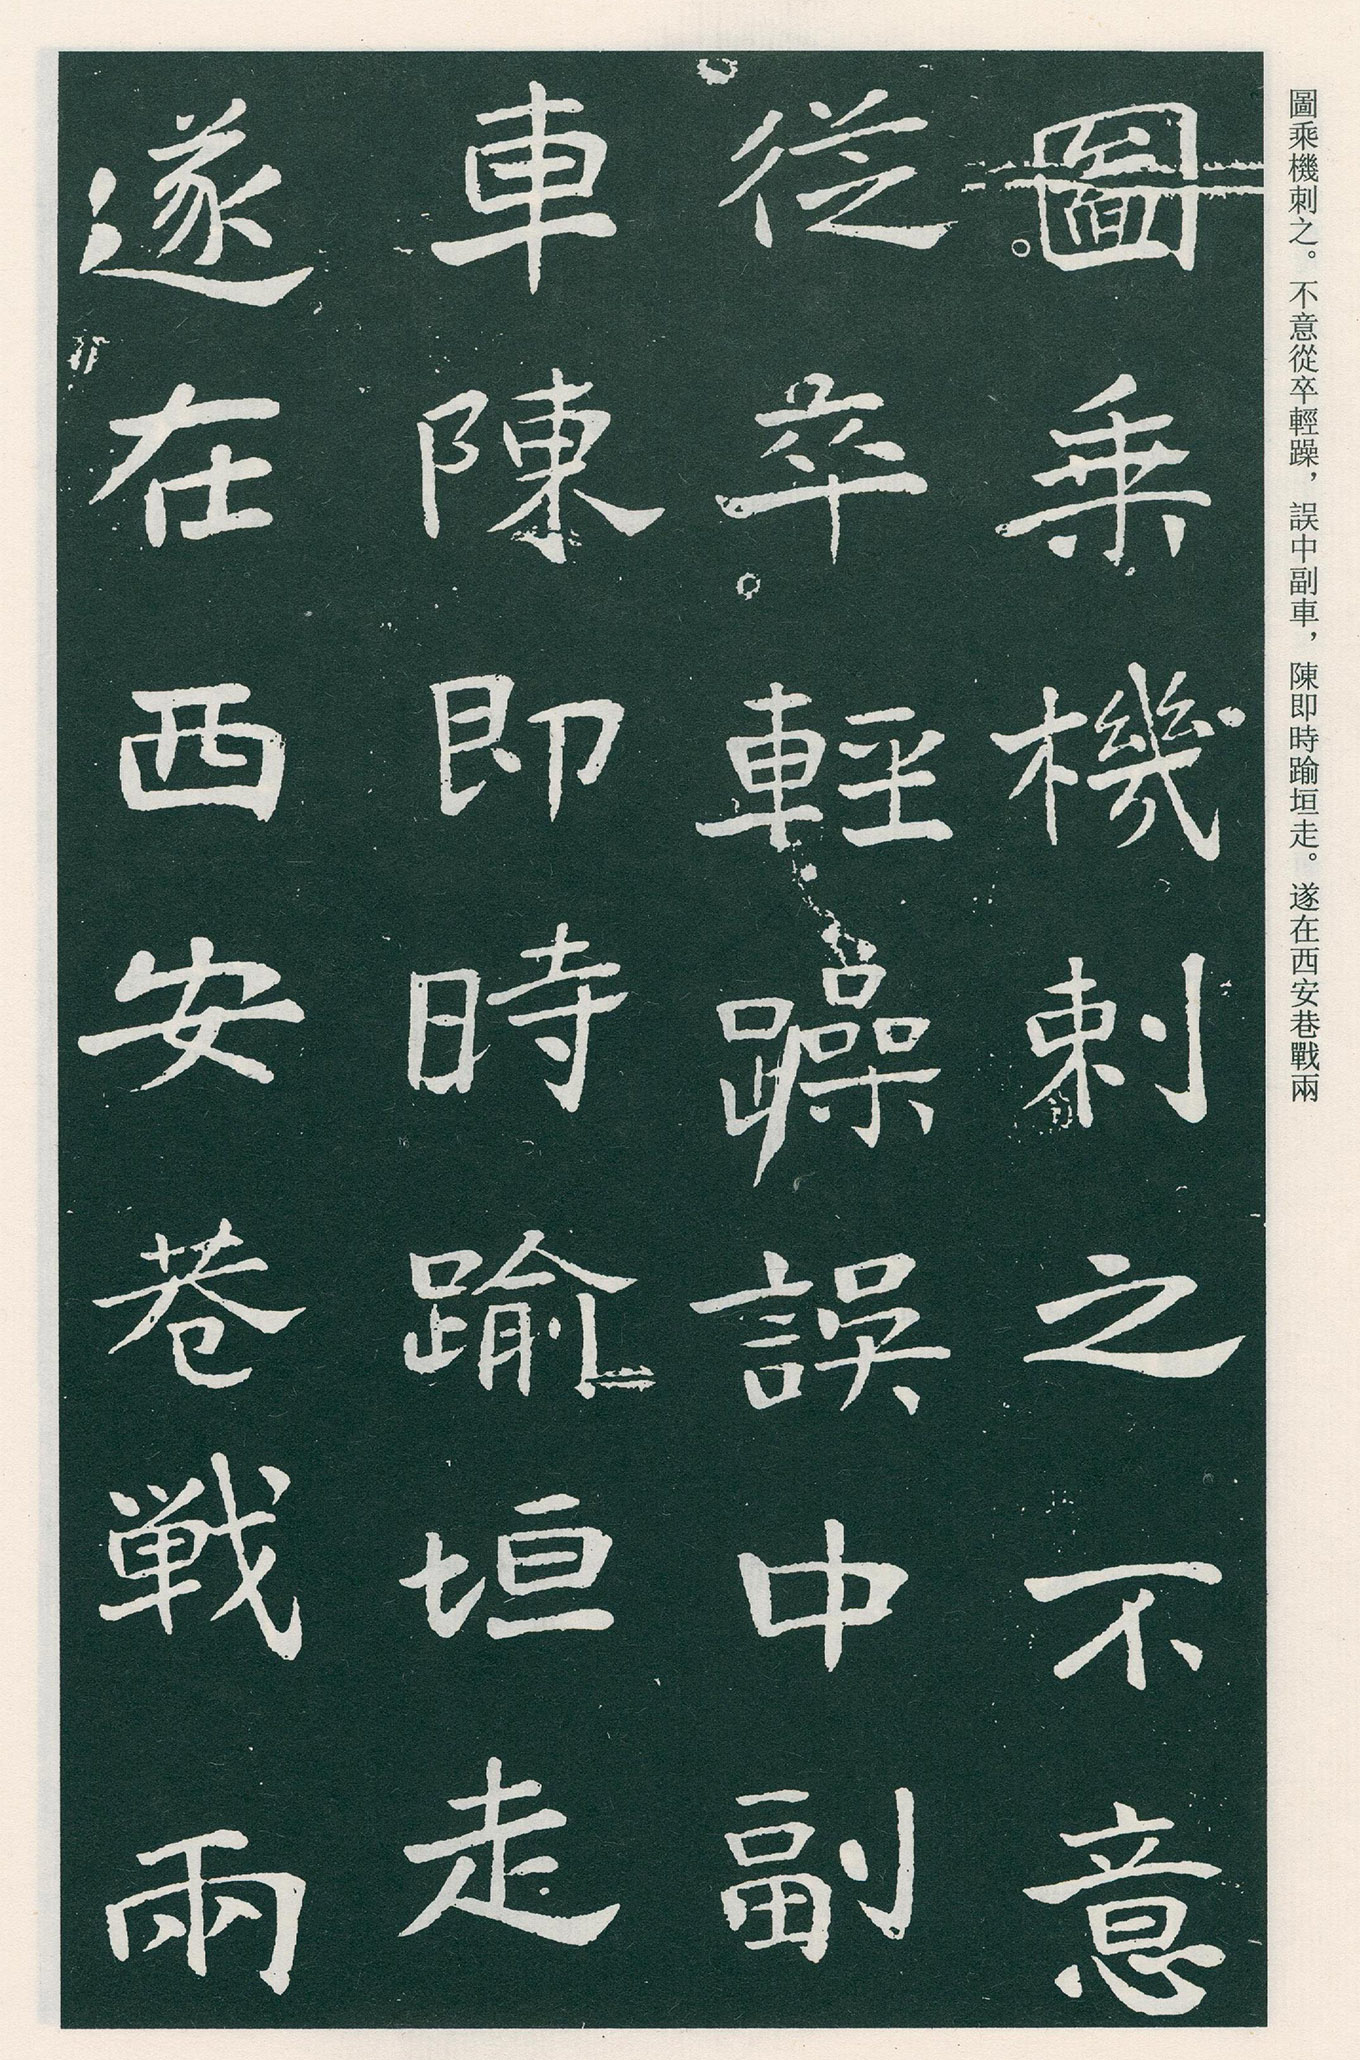 圖乘機刺之。不意從卒輕躁，誤中副車，陳即時踰垣走。遂在西安巷戰兩
圖乗機刺之不意
従卒輕躁誤中副
車陳即時踰垣走
遂在西安巷戦兩